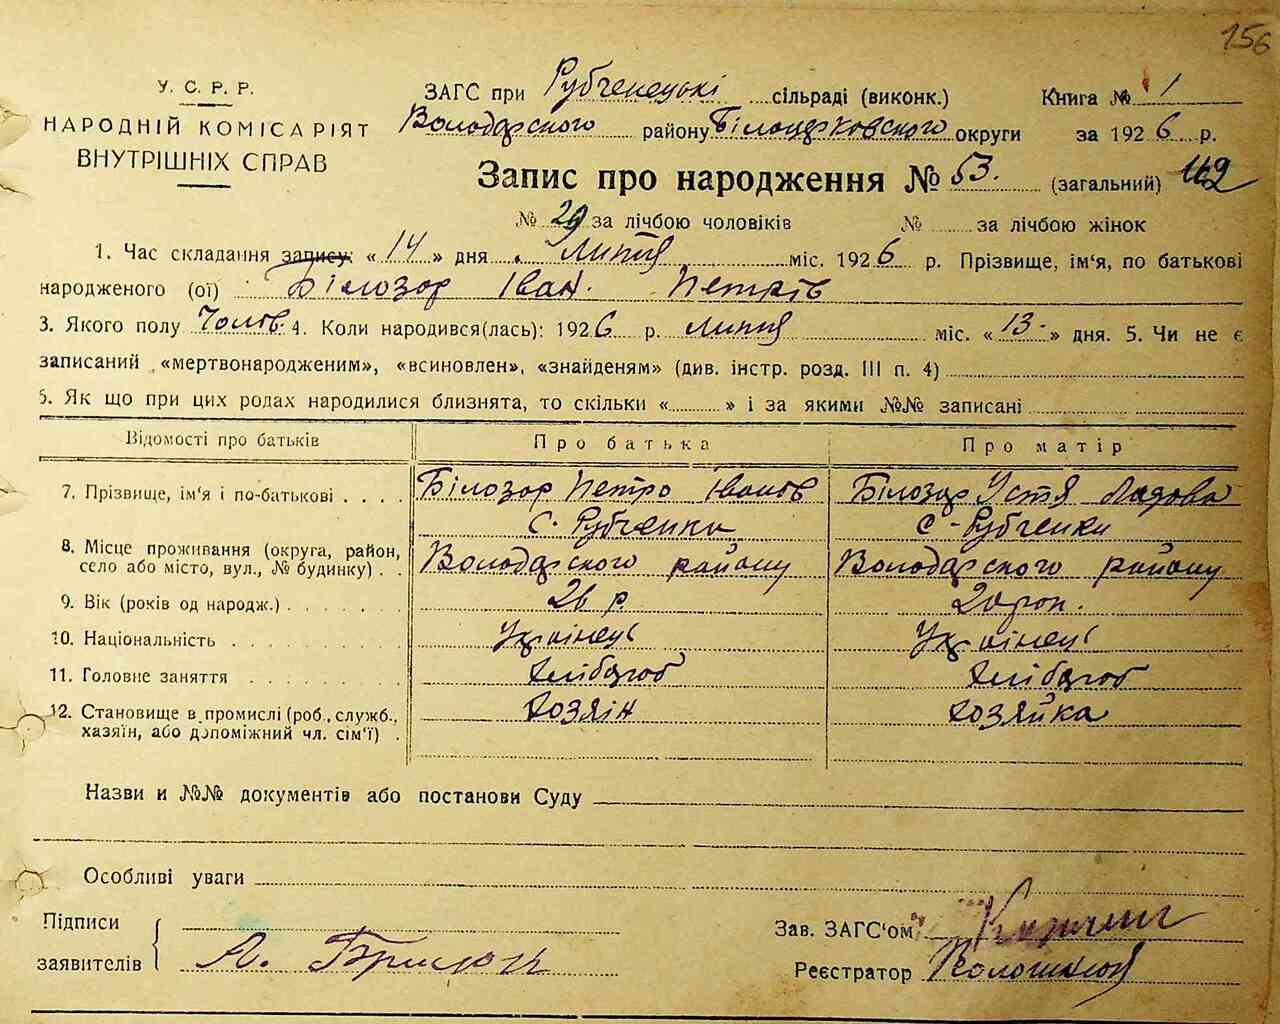 156
У. С. Р. Р.
НАРОДНІЙ КОМІСАРІЯТ
ВНУТРІШНІХ СПРАВ
ЗАГС при Рубченецькі сільраді (виконк.) Книга № 1
Володарского району Білоцерковского округи за 1926 р.
Запис про народження № 53. (загальний) 162
№ 29 за лічбою чоловіків № за лічбою жінок
1. Час складання запису: «14» дня „ Липня міс. 1926 р. Прізвище, ім'я, по батькові
народженого (ої) Білозор Іван. Петрів
3. Якого полу Чолов. 4. Коли народився(лась): 1926 р. Липня міс. «13» дня. 5. Чи не є
записаний „«мертвонародженим», «всиновлен», «знайденям» (див. інстр. розд. III п. 4)
6. Як що при цих родах народилися близнята, то скільки «» і за якими №№ записані
Відомості про батьків Про батька Про матір
7. Прізвище, ім'я і по-батькові . . . . Білозор Петро Іванов Білозор Устя
С. Рубченки С. Рубченки
8. Місце проживання (округа, район,
село або місто, вул., № будинку) . . Володарского району Володарского району
9. Вік (років од народж.) . . . . . . . 26 р. 20 рок.
10. Національність . . . . . . . . . Українець Українець
11. Головне заняття . . . . . . . . Хлібороб Хлібороб
12. Становище в промислі (роб., служб., Хозяін Хозяйка
хазяїн, або допоміжний чл. сім'ї) .
Назви и №№ документів або постанови Суду
Особливі уваги
Підписи
заявителів А.
Зав. ЗАГС'ом
Реєстратор